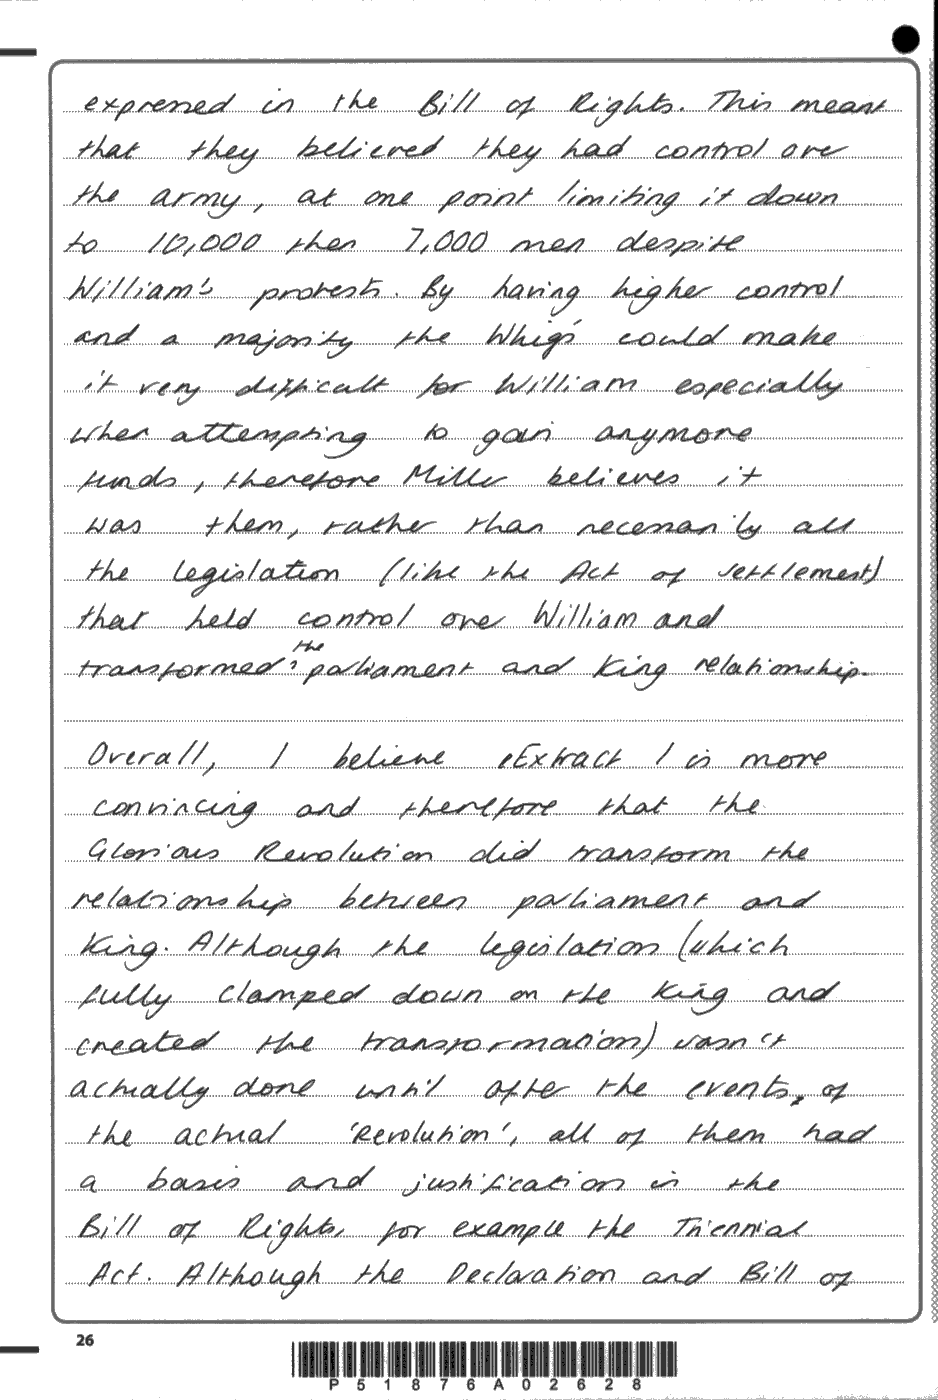 expressed in the Bill of Rights. This meant
that they believed they had control over
the army, at one point limiting it down
to 10,000 then 7,000 men despite
William's protests. By having higher control
and a majority the Whig's could make
it very difficult for William especially
when attempting to gain anymore
funds, therefore Miller believes it
was them, rather than necessarily all
the legislation (like the Act of Settlement)
that held control over William and
transformed the parliament and King relationship.
Overall, I believe Extract 1 is more
convincing and therefore that the
Glorious Revolution did transform the
relationship between parliament and
King. Although the legislation (which
fully clamped down on the King and
created the transformation) wasn't
actually done until after the events, of
the actual 'Revolution', all of them had
a basis and justification in the
Bill of Rights, for example the Triennial
Act. Although the Declaration and Bill of
26
P51876A02628